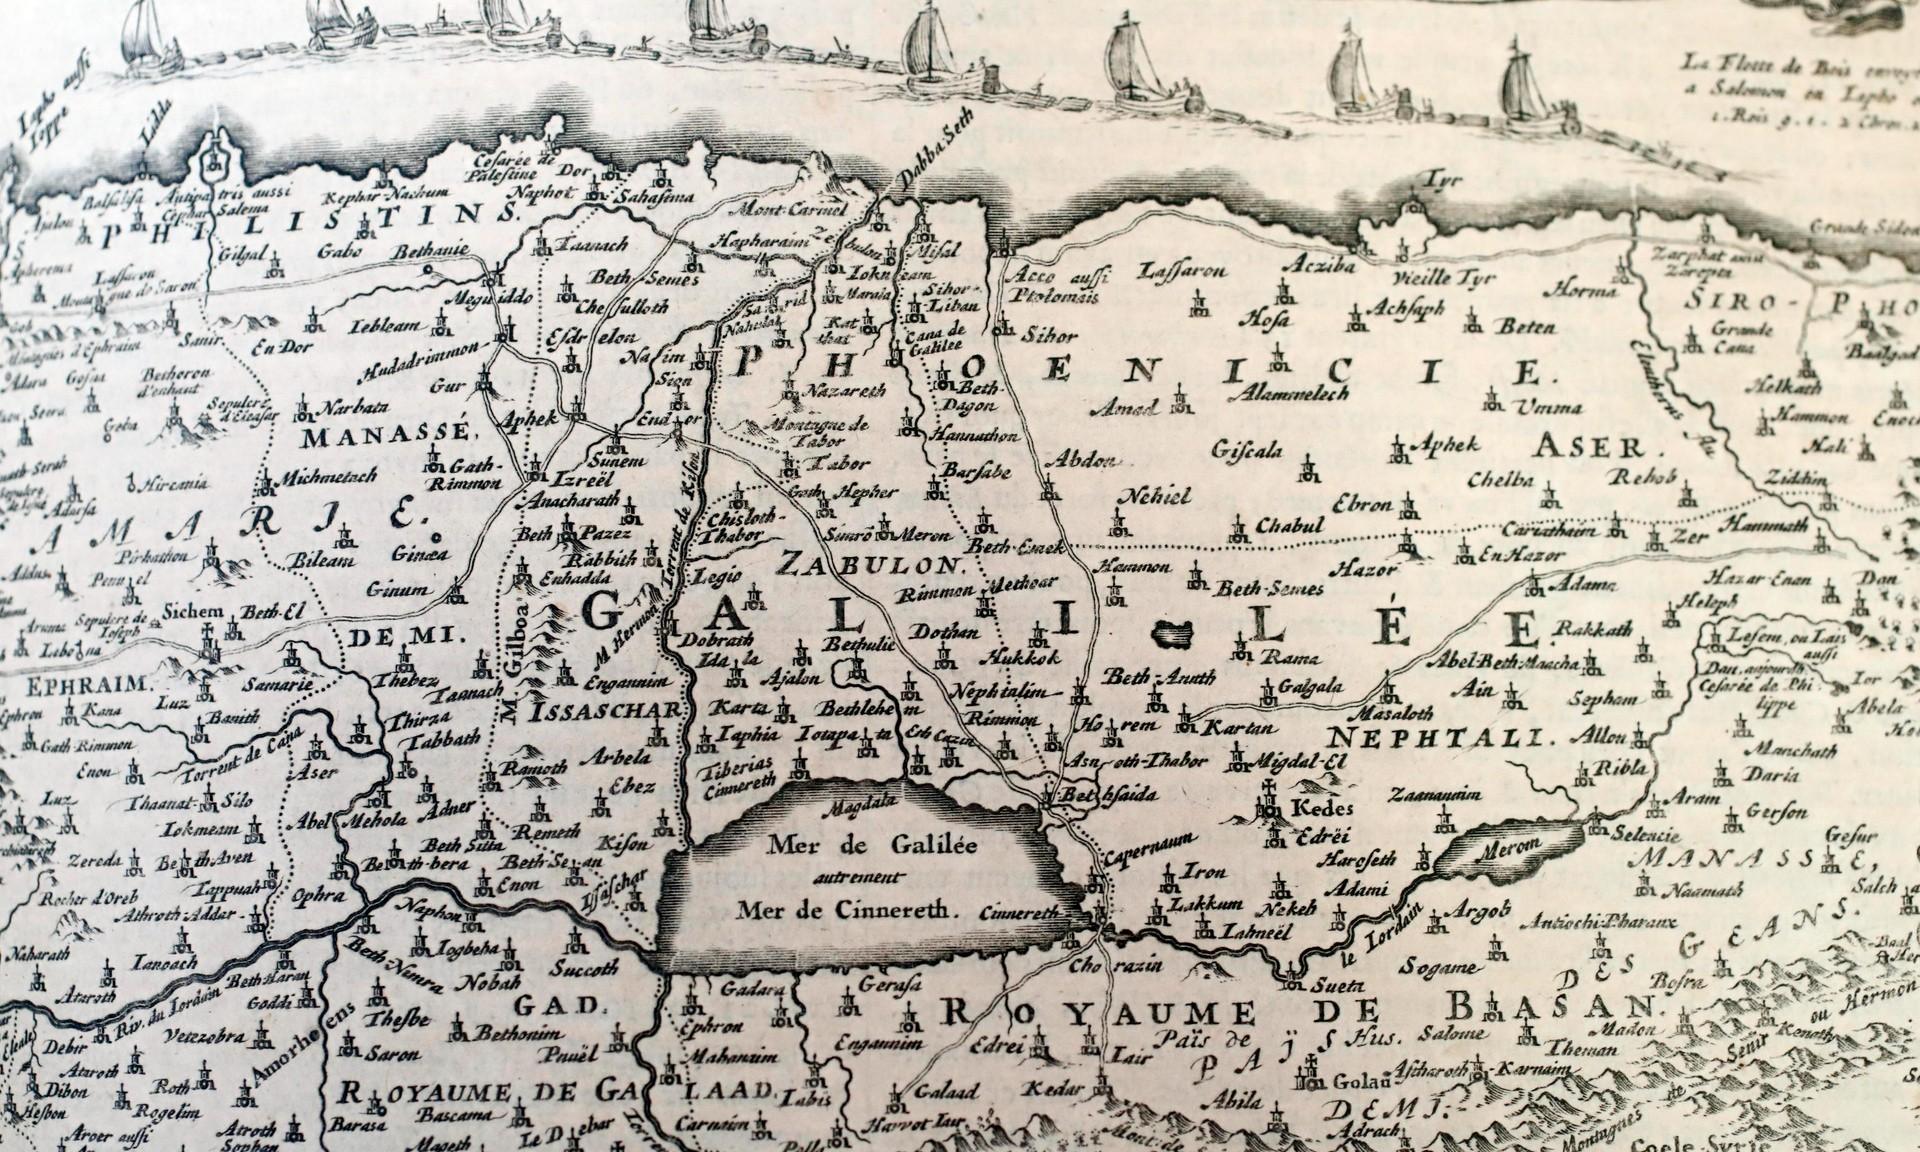 La Flotte de Bois
a Salomon en Iapho
Iapho aussi
Ioppe
Lidda
Dabba Seth
Tyr
Cesarée de
Palestine
Dor
Balsalisa
Antipatris aussi
Cephar Salema
Kephar-Nachum
Naphot
Sahasima
Mont Carmel
Grande Sidon
Ajalon
PHILISTINS.
Gilgal
Gabo
Bethanie
Taanach
Hapharaim
Zebulon
Misal
Apherema
Lassaron
Montagne de Saron
Beth Semes
Iokneam
Acco aussi
Ptolomais
Lassaron
Acziba
Vieille Tyr
Zarphat
Zarepta
Megiddo
Chessulloth
Sarid
Marala
Sihor-
Liban
Horma
SIRO-PHO
Iebleam
Esdrelon
Nahalal
Kat
that
Cana de
Galilee
Sihor
Hosa
Achsaph
Beten
Grande
Cana
Montagnes d'Ephraim
Sanir
En Dor
Hudadrimmon
Nasim
PHOENICIE.
Baalgad
Adara
Betheron
d'enhaut
Gur
Sion
Nazareth
Beth-
Dagon
Amad
Alammelech
Umma
Eleutherus
Helkath
Geba
Sepulcre
d'Eleasar
Narbata
Aphek
Endor
Montagne de
Tabor
Hannathon
Hammon
MANASSÉ.
Gath-
Rimmon
Sunem
Tabor
Barsabe
Abdon
Giscala
Aphek
ASER.
Hali
Hircania
Michmetach
Izreël
Anacharath
Gath Hepher
Nehiel
Ebron
Chelba
Rehob
Ziddim
Adarsa
AMARIE.
Beth Pazez
Torrent de Kison
Chisloth-
Thabor
Simro Meron
Beth-Emek
Chabul
Cariathaim
Zer
Hammath
Pirhathon
Bileam
Ginæa
Rabbith
Enhadda
Legio
ZABULON.
Hammon
Hazor
En Hazor
Addus
Penuel
Ginum
Rimmon Methoar
Beth-Semes
Adama
Hazar Enan
Dan
Sepulcre de
Ioseph
Sichem
Beth-El
M. Gilboa
M Hermon
GALILÉE
Heleph
Aruma
Lebona
DEMI.
Dobrath
Bethulie
Dothan
Rakkath
Lesem, ou Lais
aussi
EPHRAIM.
Samarie
Thebez
Taanach
Engannim
Idala
Ajalon
Hukkok
Rama
Abel-Beth-Maacha
Dan, aujourdh
Cesarée de Phi
lippe
Ior
Ephron
Kana
Luz
Banith
Thirza
ISSASCHAR
Karta
Bethlehem
Nephtalim
Beth-Anath
Galgala
Ain
Sepham
Abela
Gath-Rimmon
Torrent de Cana
Tabbath
Iaphia
Iotapata
Rimmon
Horem
Kartan
Masaloth
Enon
Aser
Ramoth
Arbela
Tiberias
Cinnereth
Asnoth-Thabor
Migdal-El
NEPHTALI.
Allon
Manchath
Luz
Thaanat Silo
Ebez
Magdala
Bethsaida
Kedes
Zaananim
Ribla
Daria
Iokmeam
Abel Mehola
Adner
Remeth
Kison
Mer de Galilée
autrement
Mer de Cinnereth.
Cinnereth
Capernaum
Edrëi
Merom
Seleucie
Aram
Gerson
Gesur
Zereda
Beth Aven
Beth-bera
Beth Sitta
Beth-Sean
Haroseth
MANASSE,
Rocher d'Oreb
Tappuah
Ophra
Enon
Issaschar
Iron
Adami
Naamath
Salch
Athroth-Addar
Naphon
Lakkum
Nekeb
le Iordain
Argob
Antiochi-Pharanx
Naharath
Ianoach
Beth-Nimra
Iogbeha
Iahneël
GEANS.
DES
Ataroth
Beth Haran
Nobah
Succoth
Chorazin
Sueta
Sogame
Bosra
Riv. du Iordain
Goddi
GAD.
Gadara
Gerasa
ROYAUME DE BASAN.
ou Hermon
Debir
Vezzobra
Amorheens
Thesbe
Bethonim
Ephron
Engannim
Edrei
Païs de Hus.
Salome
Madon
Kenath
Senir
Ataroth
Saron
Pnuël
Mahanaim
Iair
PAJS
Theman
Dibon
Roth
ROYAUME DE GALAAD.
Galaad
Kedar
Golan
Astharoth
Karnaim
Hesbon
Rogelim
Bascama
Iabis
Abila
DEMJ.
Aroer aussi
Atroth
Sophan
Barasa
Mageth
Carnaim
Havvot Iair
Adrach
Mont de
Montagnes de
Coele-Syrie